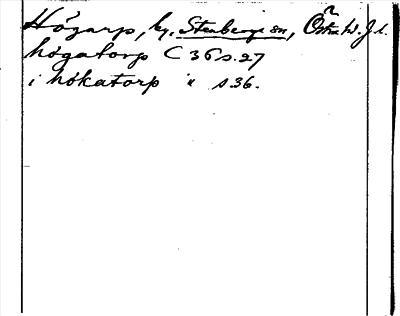 Högarp, by, Stenberga sn, Östra hd. J. l.
högatorp C 36 s. 27
i hökatorp " s 36.